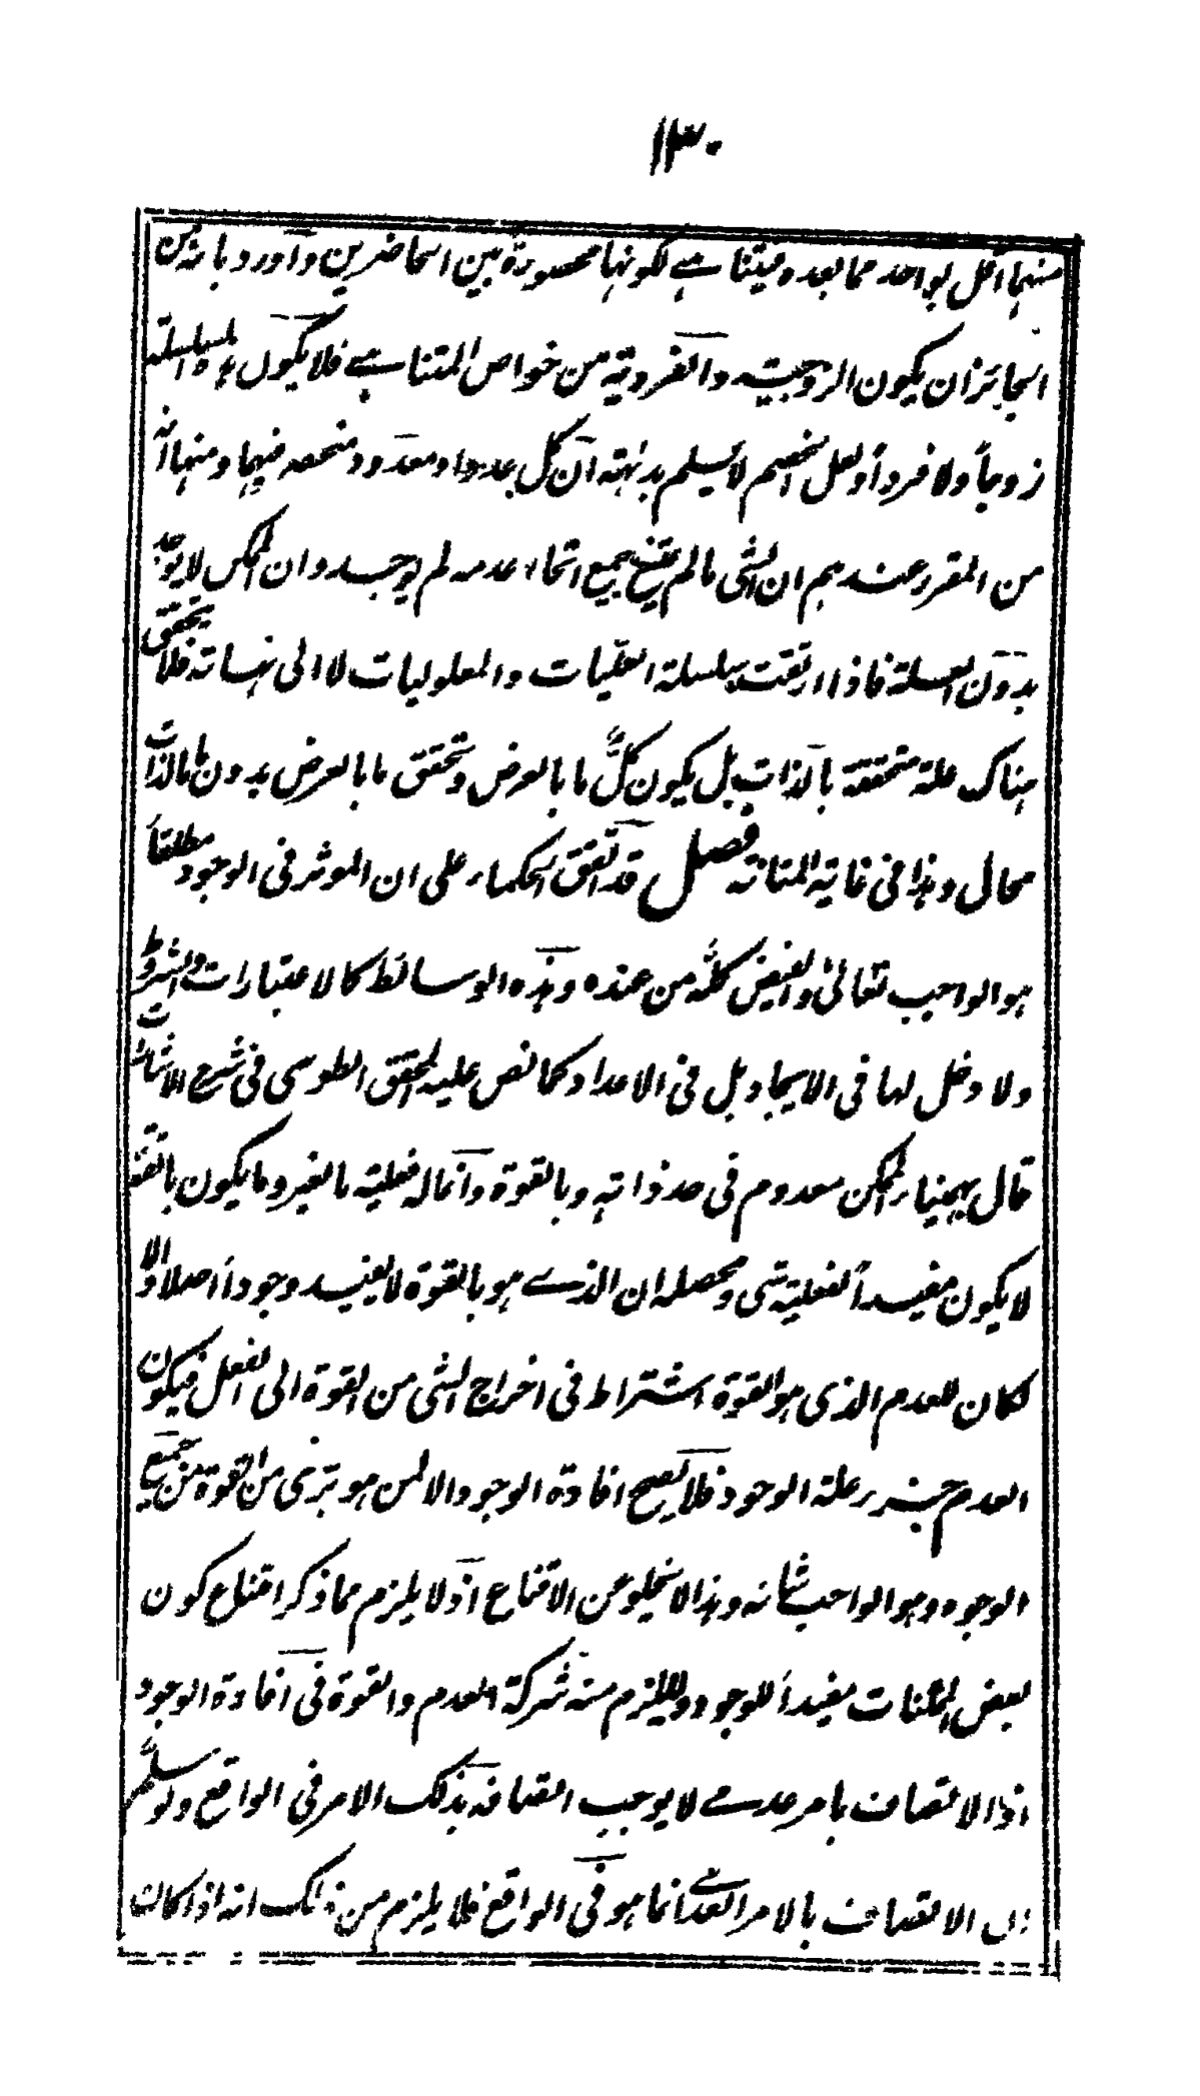 ١٣٠
منهما اقل بواحد مما بعده فيتناهى لكونها محصورة بين الحاضرين واورد بانه من
الجائز ان يكون الزوجية والفردية من خواص المتناهى فلا يكون السلسلة
زوجاً ولا فرداً ولعل الخصم لا يسلم بداهته ان كل عدد او معدود منحصر فيهما ومنها انه
من المقرر عندهم ان الشى ما لم يمتنع جميع انحاء عدمه لم يوجد وان الممكن لا يوجد
بدون العلة فاذا ارتقت سلسلة العليات والمعلوليات لا الى نهاية فلا يتحقق
هناك علة متحققة بالذات بل يكون كل ما بالعرض وتحقق ما بالعرض بدون ما بالذات
محال وهذا فى غاية المتانة فصل قد اتفق الحكماء على ان الموثر فى الوجود مطلقاً
هو الواجب تعالىٰ والفيض كله من عنده وهذه الوسائط كالاعتبارات والشروط
ولا دخل لها فى الايجاد بل فى الاعداد كما نص عليه المحقق الطوسى فى شرح الاشارات
قال بهمنيار الممكن معدوم فى حد ذاته وبالقوة وانما له فعلية ما بالغير وما يكون بالقوة
لا يكون مفيداً لفعلية شى ومحصله ان الذى هو بالقوة لا يفيد وجوداً اصلا والا
لكان للعدم الذى هو القوة اشتراط فى اخراج الشى من القوة الى الفعل فيكون
العدم جزء علة الوجود فلا يصح افادة الوجود الا لمن هو برئ من القوة من جميع
الوجوه وهو الواجب شانه وهذا لا يخلو عن الاقناع اذ لا يلزم مما ذكر امتناع كون
بعض الممكنات مفيداً للوجود ولا يلزم منه شركة العدم والقوة فى افادة الوجود
اذ الاتصاف بامر عدمى لا يوجب اتصافه بذلك الامر فى الواقع ولو سلم
ان الاتصاف بالامر العدمى انما هو فى الواقع فلا يلزم من ذلك انه اذا كان